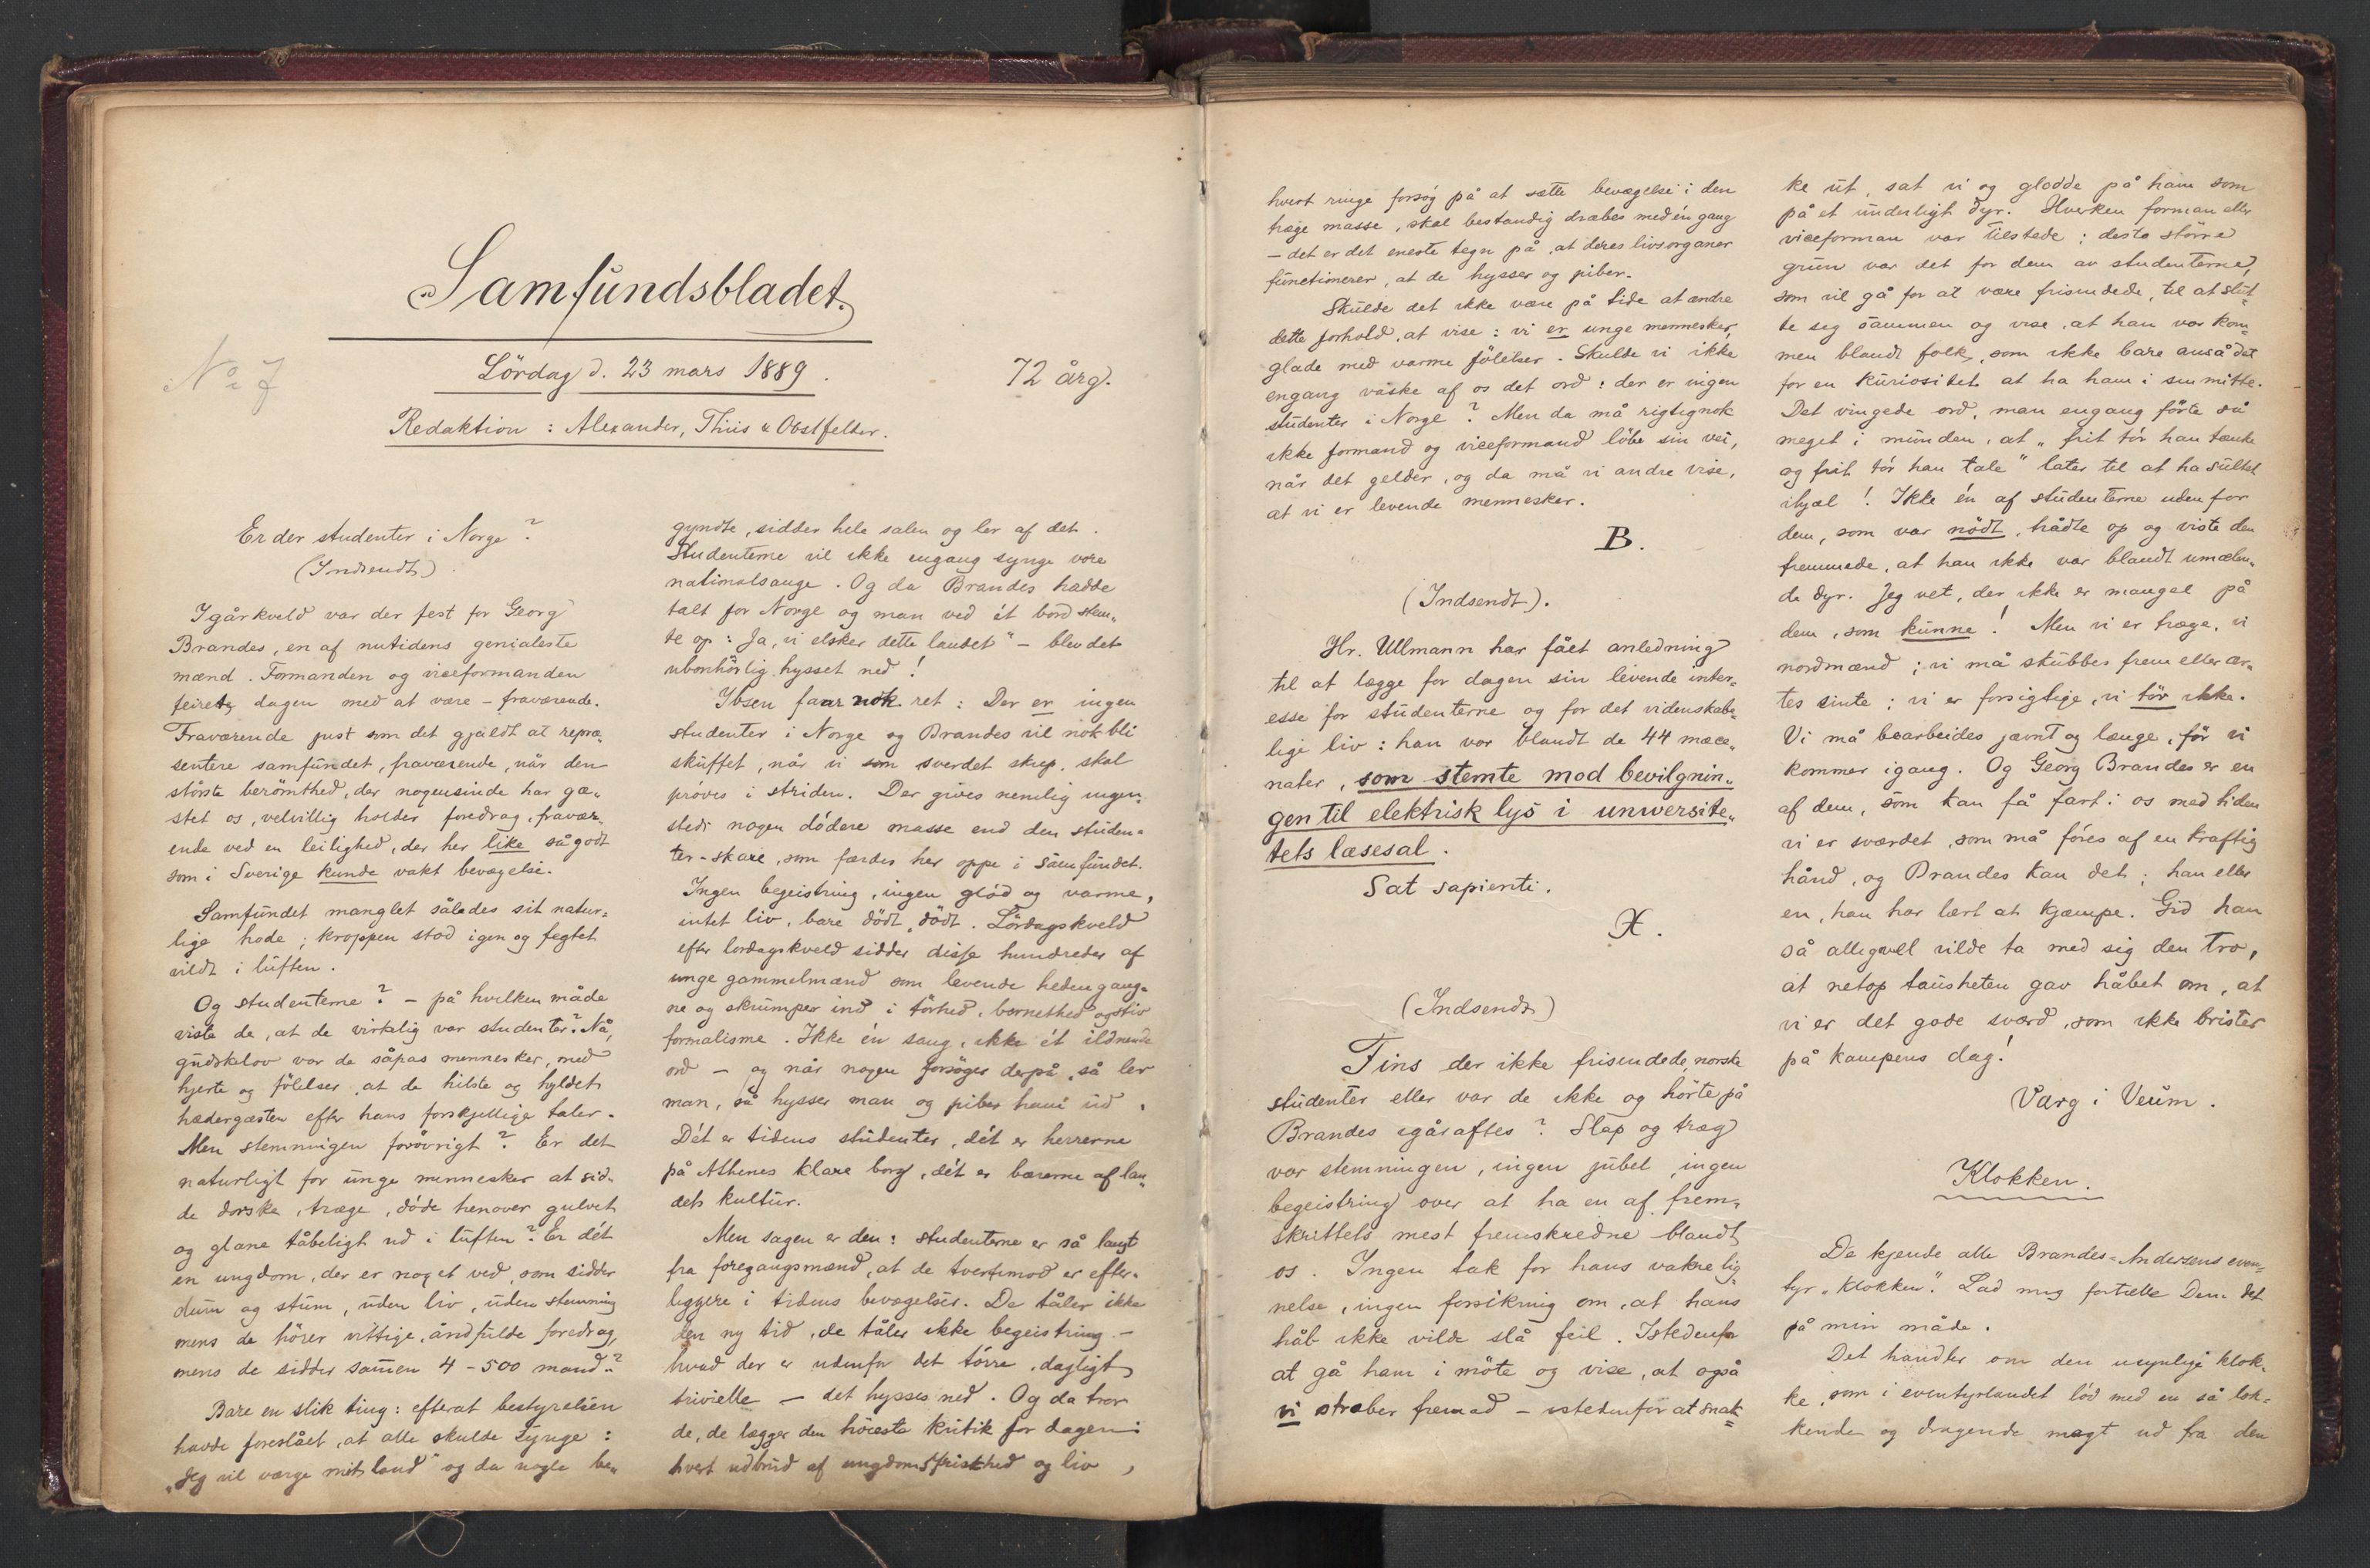 Samfundsbladet.
No 7
Lördag d. 23 mars 1889.
72 årg.
Redaktion: Alexander, Thiis & Obstfelder.
Er der studenter i Norge?
(Indsendt).
Igårkveld var der fest for Georg
Brandes, en af nutidens genialeste
mænd. Formanden og viseformanden
feirets dagen med at være - fraværende.
Fraværende just som det gjældt at repræ„
sentere samfundet, fraværende, når den
störste berömthed, der nogensinde har gæ„
stet os, velvillig holder foredrag, fravær„
ende ved en leilighed, der her like så godt
som i Sverige kunde vakt bevægelse.
Samfundet manglet således sit natur„
lige hode; kroppen stod igen og fegtet
vildt i luften.
Og studenterne? - på hvilken måde
viste de, at de virkelig var studenter? Nå,
gudskelov var de såpas mennesker, med
hjerte og fölelser at de hilste og hyldet
hædergæsten efter hans forskjellige taler.
Men stemningen forövrigt? Er det
naturligt for unge mennesker at sid„
de dorske, træge, döde henover gulvet
og glane tåbeligt ud i luften? Er dét
en ungdom, der er noget ved, som sidder
dum og stum, uden liv, uden stemning
mens de hörer vittige, åndfulde foredrag,
mens de sidder samen 4 - 500 mand?
Bare en slik ting: efterat bestyrelsen
havde foreslået, at alle skulde synge:
„Jeg vil værge mit land" og da nogle be„
gyndte, sidder hele salen og ler af det.
Studenterne vil ikke engang synge vore
nationalsange. Og da Brandes hadde
talt for Norge og man ved ét bord stem„
te op: Ja, vi elsker dette landet" - blev det
ubönhörlig hysset ned!
Ibsen faar nok ret: Der er ingen
studenter i Norge og Brandes vil nok bli
skuffet, når vi som sverdet skup. skal
pröves i striden. Der gives nemlig ingen„
steds nogen dödere masse end den studen„
ter-skare, som færdes her oppe i Samfundet.
Ingen begeistring, ingen glöd og varme,
intet liv, bare dödt, dödt. Lördagskveld
efter lordagskveld sidder disse hundreder af
unge gammelmænd som levende hedengang„
ne og skrumper ind i törhed, bornethed og stiv
formalisme. Ikke én sang, ikke ét ildnende
ord - og når nogen forsöger derpå, så ler
man, så hysser man og piber ham ud.
Dét er tidens studenter, dét er herrerne
på Athenes klare borg, dét er bærerne af lan„
dets kultur.
Men sagen er den: studenterne er så langt
fra foregangsmænd, at de tvertimod er efter„
liggere i tidens bevægelser. De tåler ikke
den ny tid, de tåler ikke begeistring -
hvad der er udenfor det törre, dagligt
trivielle - det hysses ned. Og da tror
de, de lægger den höieste kritik for dagen:
hvert udbrud af ungdomsfriskhed og liv,
hvert ringe forsög på at sætte bevægelse i den
træge masse, skal bestandig dræbes med én gang
- det er det eneste tegn på, at deres livsorganer
functionerer, at de hysser og piber.
Skulde det ikke være på tide at ændre
dette forhold, at vise: vi er unge mennesker,
glade med varme fölelser. Skulde vi ikke
engang vaske af os det ord: der er ingen
studenter i Norge? Men da må rigtignok
ikke formand og viceformand löbe sin vei,
når det gelder, og da må vi andre vise,
at vi er levende mennesker.
B.
(Indsendt).
Hr. Ullmann har fået anledning
til at lægge for dagen sin levende inter„
esse for studenterne og for det videnskabe„
lige liv: han var blandt de 44 mæce„
nater, som stemte mod bevilgnin„
gen til elektrisk lys i universite„
tets læsesal.
Sat sapienti.
X.
(Indsendt)
Fins der ikke frisindede, norske
studenter eller var de ikke og hörte på
Brandes igåraftes? Slap og træg
var stemningen, ingen jubel, ingen
begeistring over at ha en af frem„
skrittets mest fremskredne blandt
os. Ingen tak for hans vakre lig„
nelse, ingen forsikring om, at hans
håb ikke vilde slå feil. Istedenfor
at gå ham i möte og vise, at også
vi stræber fremad - istedenfor at snak„
ke ut, sat vi og glodde på ham som
på et underligt dyr. Hverken forman eller
viceforman var tilstede; desto större
grun var det for dem av studenterne,
som vil gå for at være frisindede, til at slut„
te seg sammen og vise, at han var kom„
men blandt folk, som ikke bare anså det
for en kuriositet at ha ham i sin mitte.
Det vingede ord, man engang förte så
meget i munden, at „frit tör han tænke
og frit tör han tale" later til at ha sultet
ihjæl! Ikke én af studenterne uden for
dem, som var nödt, trådte op og viste den
fremmede, at han ikke var blandt umælen„
de dyr. Jeg vet, der ikke er mangel på
dem, som kunne! Men vi er træge, vi
nordmænd; vi må stubbes frem eller ær„
tes sinte; vi er forsigtige, vi tör ikke.
Vi må bearbeides jævnt og længe, för vi
kommer igang. Og Georg Brandes er en
af dem, som kan få fart i os med tiden
vi er sværdet, som må föres af en kraftig
hånd, og Brandes kan det; han eller
en, han har lært at kjæmpe. Gid han
så alligevel vilde ta med sig den tro,
at netop tausheten gav håbet om, at
vi er det gode sværd, som ikke brister
på kampens dag!
Varg i Veum.
Klokken.
De kjende alle Brandes-Andersens even„
tyr „Klokken". Lad mig fortælle Dem det
på min måde.
Det handler om den usynlige klok„
ke, som i eventyrlandet löd med en så lok„
kende og dragende magt ud fra den